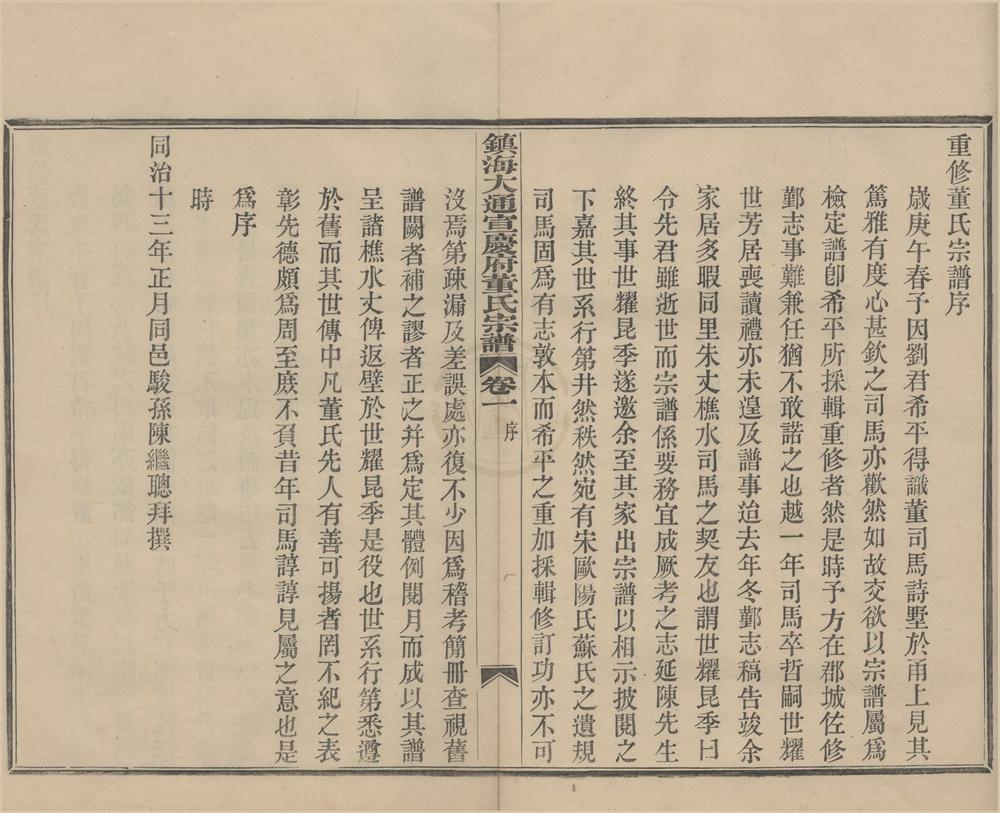 重修董氏宗譜序
歲庚午春予因劉君希平得識董司馬詩墅於甬上見其
篤雅有度心甚欽之司馬亦歡然如故交欲以宗譜屬爲
檢定譜卽希平所採輯重修者然是時予方在郡城佐修
鄞志事難兼任猶不敢諾之也越一年司馬卒哲嗣世耀
世芳居喪讀禮亦未遑及譜事迨去年冬鄞志稿告竣余
家居多暇同里朱丈樵水司馬之契友也謂世耀昆季曰
令先君雖逝世而宗譜係要務宜成厥考之志延陳先生
終其事世耀昆季遂邀余至其家出宗譜以相示披閱之
下嘉其世系行第井然秩然宛有宋歐陽氏蘇氏之遺規
司馬固爲有志敦本而希平之重加採輯修訂功亦不可
鎮海大通宣慶府董氏宗譜 卷一 序
沒焉第疎漏及差誤處亦復不少因爲稽考簡冊查視舊
譜闕者補之謬者正之幷爲定其體例閱月而成以其譜
呈諸樵水丈俾返壁於世耀昆季是役也世系行第悉遵
於舊而其世傳中凡董氏先人有善可揚者罔不紀之表
彰先德頗爲周至庶不負昔年司馬諄諄見屬之意也是
爲序
時
同治十三年正月同邑駿孫陳繼聰拜撰